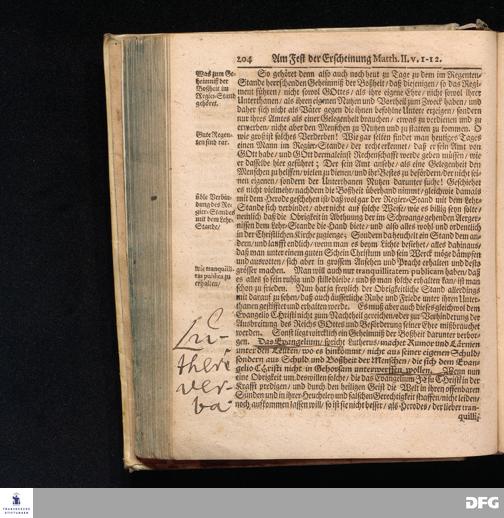 204 Am Fest der Erscheinung Matth. II. v. 1-12.
Was zum Ge-
heimniß der
Boßheit im
Regier-Stand
gehöret.
So gehöret denn also auch noch heut zu Tage zu dem im Regenten-
Stande herrschenden Geheimniß der Boßheit/ daß diejenigen/ so das Regi-
ment führen/ nicht sowol GOttes/ als ihre eigene Ehre/ nicht sowol ihrer
Unterthanen/ als ihren eigenen Nutzen und Vortheil zum Zweck haben/ und
daher sich nicht als Väter gegen die ihnen befohlne Unterthanen erzeigen/ sondern
nur ihres Amtes als einer Gelegenheit brauchen/ etwas zu verdienen und zu
erwerben/ nicht aber den Menschen zu Nutzen und zu statten zu kommen. O
Gute Regen-
ten sind rar.
wie groß ist solches Verderben! Wie gar selten findet man heutiges Tages
einen Mann im Regier-Stande/ der recht erkennet/ daß er sein Amt von
GOtt habe/ und GOtt dermaleinst Rechenschafft werde geben müssen/ wie
er dasselbe hier geführet; Der sein Amt ansehe/ als eine Gelegenheit den
Menschen zu helffen/ vielen zu dienen/ und ihr Bestes zu befördern/ der nicht sei-
nen eigenen/ sondern der Unterthanen Nutzen darunter suche! Geschiehet
es nicht vielmehr/ nachdem die Boßheit überhand nimmt/ gleichwie damals
üble Verbin-
dung des Re-
gier-Standes
mit dem Lehr-
Stande/
mit dem Herode geschehen ist/ daß wol gar der Regier-Stand mit dem Lehr-
Stande sich verbindet/ aber nicht auf solche Weise/ wie es billig seyn solte/
nemlich daß die Obrigkeit in Abthuung der im Schwange gehenden Aerger-
nissen dem Lehr-Stande die Hand biete/ und also alles wohl und ordentlich
in der Christlichen Kirche zugienge; Sondern da heuchelt ein Stand dem an-
dern/ und laufft endlich/ wenn man es beym Lichte besiehet/ alles dahinaus/
daß man unter einem guten Schein Christum und sein Werck möge dämpfen
und ausrotten/ sich aber in grossem Ansehen und Pracht erhalten und desto
Wie tranquilli-
tas publica zu
erhalten/
grösser machen. Man will auch nur tranquillitatem publicam haben/ daß
es alles so sein ruhig und stille bleibe/ und so man solche erhalten kan/ ist man
schon zu frieden. Nun hat ja freylich der Obrigkeitliche Stand allerdings
mit darauf zu sehen/ daß auch äusserliche Ruhe und Friede unter ihren Unter-
thanen gestifftet und erhalten werde. Es muß aber auch dieses gleichwol dem
Evangelio Christi nicht zum Nachtheil gereichen/ oder zur Verhinderung der
Ausbreitung des Reichs GOttes und Beförderung seiner Ehre mißbrauchet
werden. Sonst liegt wircklich ein Geheimniß der Boßheit darunter verbor-
gen. Das Evangelium/ spricht Lutherus/ machet Rumor und Lärmen
unter den Leuten/ wo es hinkommt/ nicht aus seiner eigenen Schuld/
sondern aus Schuld und Boßheit der Menschen/ die sich dem Evan-
gelio Christi nicht in Gehorsam unterwerffen wollen. Wenn nun
eine Obrigkeit um deswillen solche/ die das Evangelium JEsu Christi in der
Krafft predigen/ und durch den heiligen Geist die Welt in ihren offenbaren
Sünden und in ihrer Heucheley und falschen Gerechtigkeit straffen/ nicht leiden/
noch aufkommen lassen will/ so ist sie nicht besser/ als Herodes/ der lieber tran-
quilli-
Lu-
theri
ver-
ba.
FRANCKESCHE
STIFTUNGEN
DFG